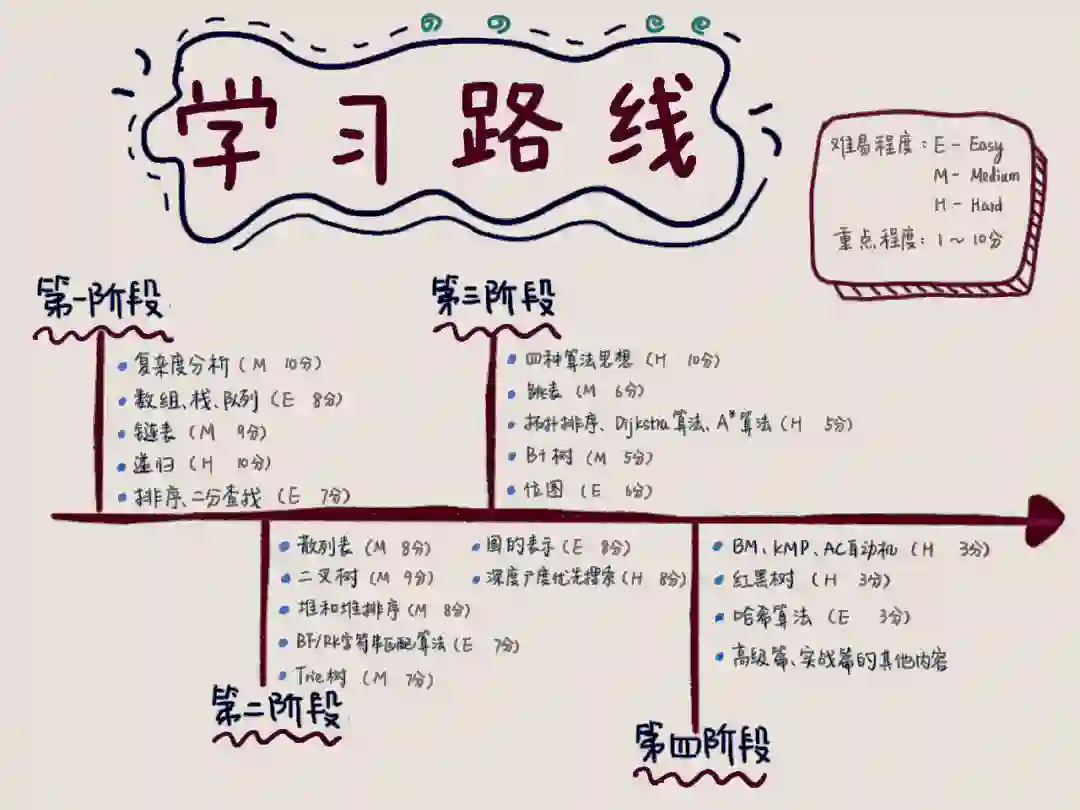 学习路线
难易程度：E - Easy
M - Medium
H - Hard
重点程度：1～10分
第一阶段
复杂度分析（M 10分）
数组、栈、队列（E 8分）
链表（M 9分）
递归（H 10分）
排序、二分查找（E 7分）
第二阶段
散列表（M 8分）
二叉树（M 9分）
堆和堆排序（M 8分）
BF/RK字符串匹配算法（E 7分）
Trie树（M 7分）
图的表示（E 8分）
深度广度优先搜索（H 8分）
第三阶段
四种算法思想（H 10分）
跳表（M 6分）
拓扑排序、Dijkstra算法、A*算法（H 5分）
B+树（M 5分）
位图（E 6分）
第四阶段
BM、KMP、AC自动机（H 3分）
红黑树（H 3分）
哈希算法（E 3分）
高级篇、实战篇的其他内容